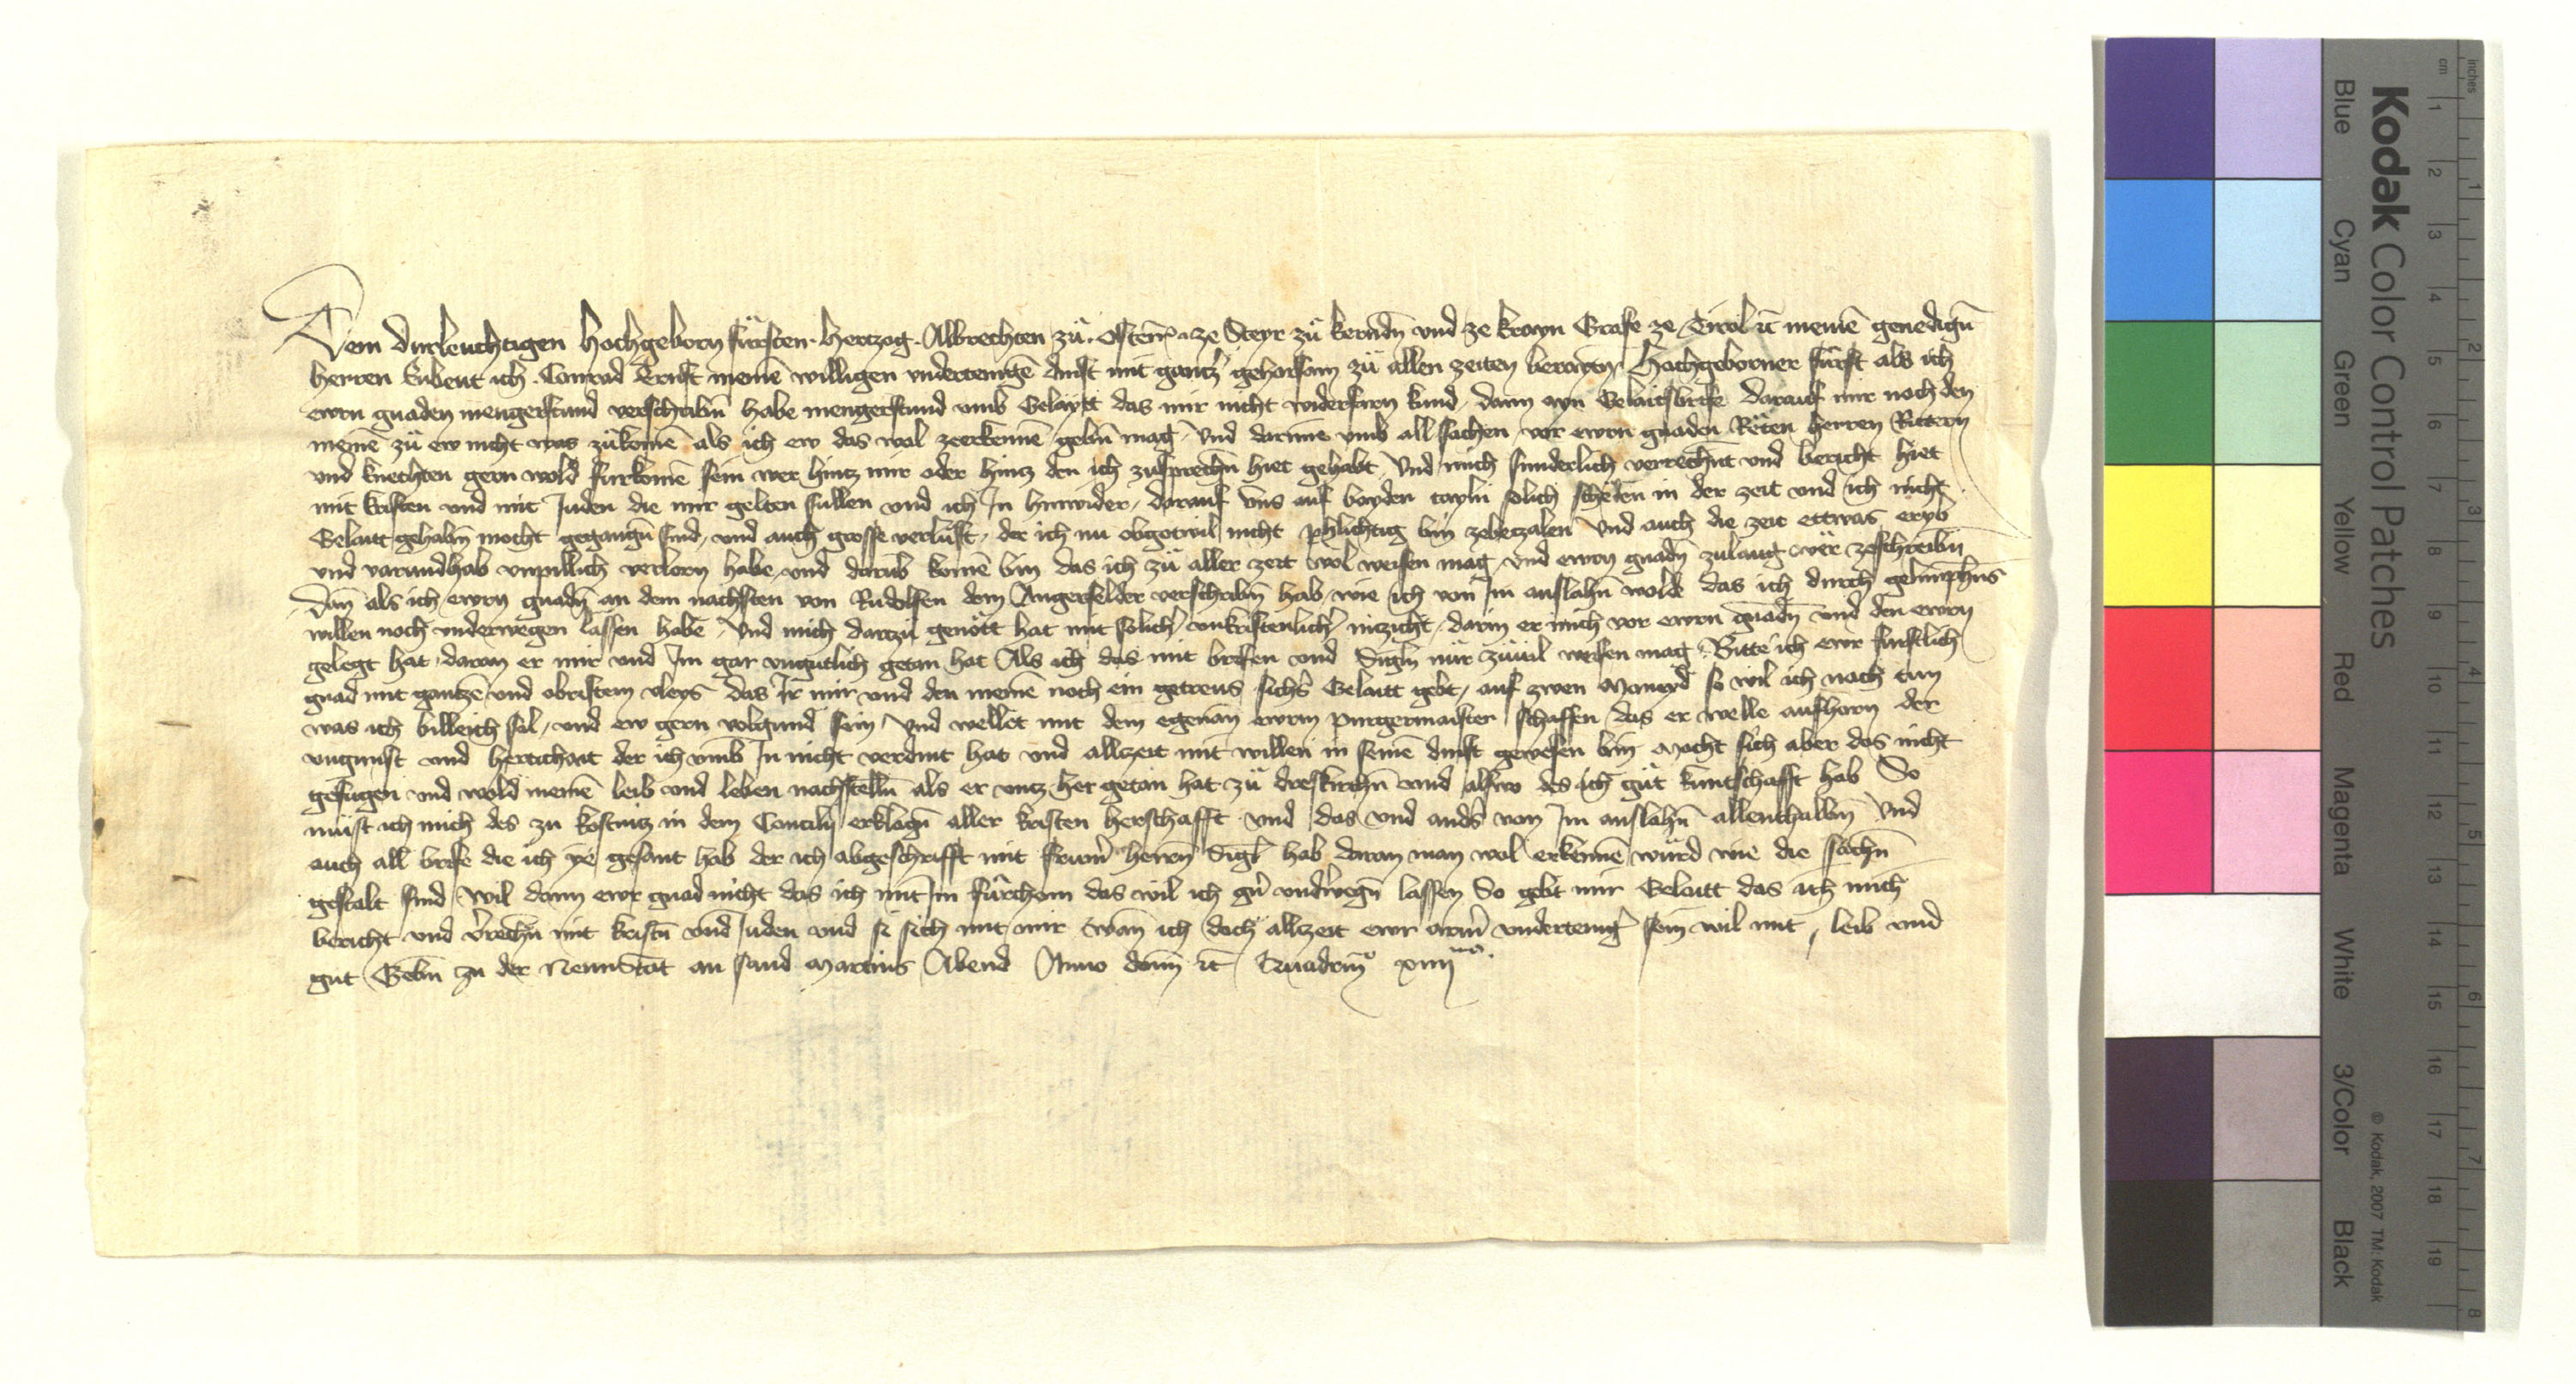 Dem durleuchtigen Hochgeborn fürsten hertzog Albrechten zü Osterr ze Steyr zü kernden und ze krayn Grafe ze Tirol rc meinē genedigñ
herren Enbeut ich Conrad Ernst meinē willigen undertenigē dinst mit gantzer gehorsam zü allen zeiten berayten Hochgeborner fürst als ich
ewrn gnaden mengerstund verschribñ habe mengerstund umb Gelaytt das mir nicht widerfarn kund dann ayn Gelaitsbrife darauf mir noch den
meinē zü ew nicht was zükomē als ich ew das wol zeerkennē gebñ mag und darinne umb all sachen vor ewrn gnaden Rëten herren Rittern
und knechten gern wold furkomē sein wer hintz mir oder hintz den ich zusprechñ hiet gehabt und mich sunderlich verrechnt und bericht hiet
mit kristen und mit Juden die mir gelten sullen und ich Jn hinwider darauf uns auf bayden tayln solich scheden in der zeit und ich nicht
Gelaitt gehabñ mocht gegangñ sind und auch grosse verlust der ich nu obgotwil nicht phlichtig bin zebetzalen und auch die zeit ettwas eryb
und varundhab unpillich verlorn habe und darub komē bin das ich zü aller zeit wol weisen mag und ewrn gnadñ zulang wër zeschreibñ
Dañ als ich ewrn gnadñ an dem nachsten von Rudolfen dem Angerfelder verschribñ hab wie ich von Jm auslahñ wolde das ich durch gelimphens
willen noch underwegen lassen habe und mich dartzü genött hat mit solicher unkristenlicher inzicht darin er mich vor ewrn gnadñ und den ewrn
gelegt hat daran er mir und Jm gar ungutlich getan hat Als ich das mit brifen und Sigln nür züuil weisen mag Bitte ich ewr furstlich
gnad mit gantzē und obristem vleys das Ir mir und den meinē noch ein getreus sichers Gelaitt gebt auf zwen Moneyd so wil ich nach tun
was ich billeich sol und ew gern volgund sein und wellet mit dem egenañ ewrm purgermaister schaffen das er welle aufhorn der
ungunst und herttichait der ich umb Jn nicht verdint hat und allzeit mit willen in seinē dinst gewesen bin Mocht sich aber das nicht
gefugen und wold meinē leib und leben nachstelln als er untz her getan hat zü dreskirchñ und alswo des ich güt kuntschafft hab So
müst ich mich des zu kostnitz in dem Concilij erklagñ aller kristen herschafft und das und anders von Jm auslahñ allenthalbñ und
auch all brife die ich ye gesant hab der ich abgeschrifft mit frumer herren Sigl hab daran man wol erkennē würd wie die sachñ
gestalt sind wil dann ewr gnad nicht das ich mit Jm fürchom das wil ich gern underwegñ lassen So gebt mir Gelaitt das ich mich
bericht und verrechñ mit kristñ und Juden und si sich mit mir wañ ich doch allzeit ewr armer undertenigr sein wil mit leib und
gut Gebñ zu der Newnstat an sand Martins Abend Anno domi rc Quadrimo xiiij